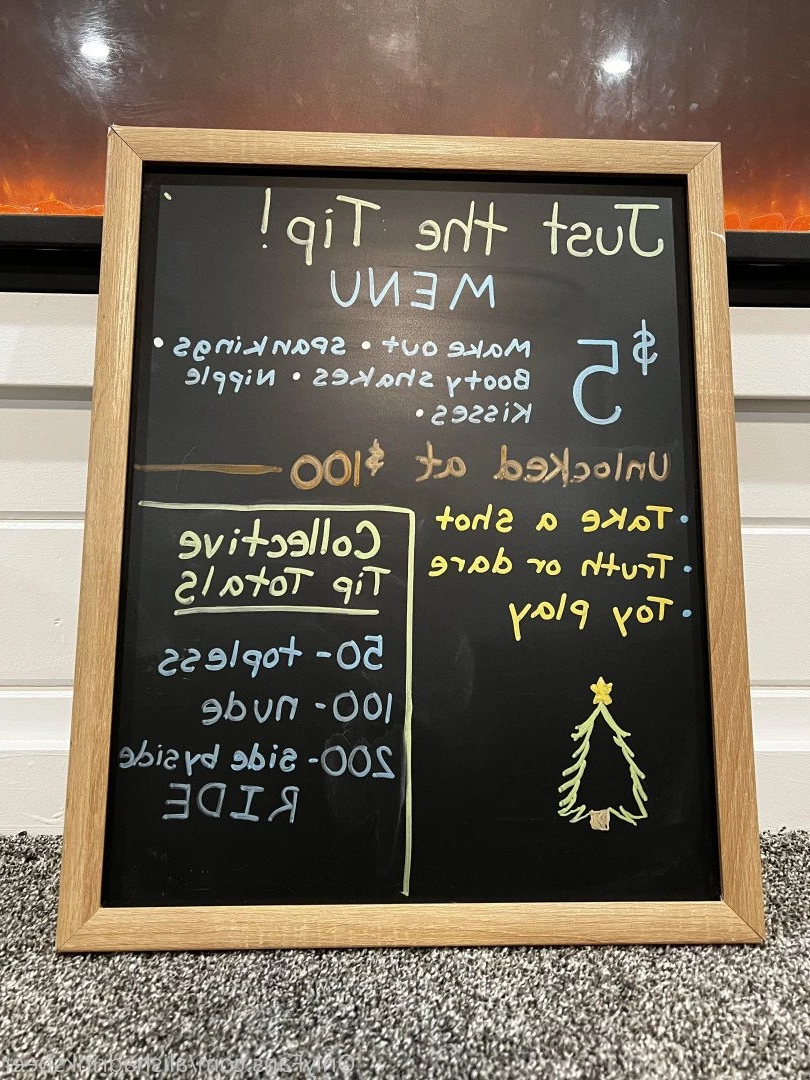 Just the Tip!
MENU
$5
Make out • Spankings •
Booty shakes • Nipple
Kisses •
Unlocked at $100
• Take a shot
• Truth or dare
• Toy play
Collective
Tip Totals
50 - topless
100 - nude
200 - side by side
RIDE